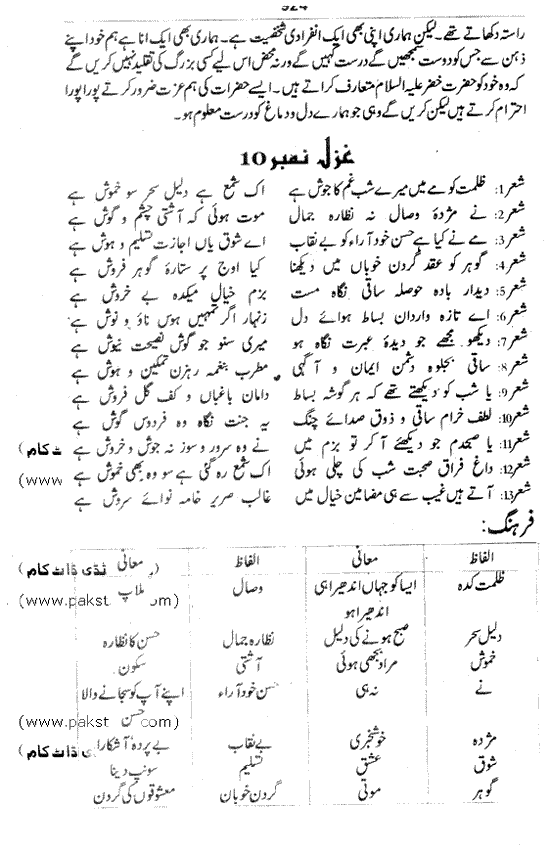 324
راستہ دکھاتے تھے۔ لیکن ہماری اپنی بھی ایک انفرادی شخصیت ہے۔ ہماری بھی ایک انا ہے ہم خود اپنے
ذہن سے جس کو دوست سمجھیں گے درست کہیں گے ورنہ محض اس لیے کسی بزرگ کی تقلید نہیں کریں گے
کہ وہ خود کو حضرت خضر علیہ السلام متعارف کراتے ہیں۔ ایسے حضرات کی ہم عزت ضرور کرتے پورا پورا
احترام کرتے ہیں لیکن کریں گے وہی جو ہمارے دل و دماغ کو درست معلوم ہو۔
غزل نمبر 10
شعر 1: ظلمت کو مے میں میرے شب غم کا جوش ہے اک شمع ہے دلیل سحر سو خموش ہے
شعر 2: نے مژدۂ وصال نہ نظارہ جمال موت ہوئی کہ آشتی چشم و گوش ہے
شعر 3: مے نے کیا ہے حسن خود آراء کو بے نقاب اے شوق یاں اجازت تسلیم و ہوش ہے
شعر 4: گوہر کو عقد گردن خوباں میں دیکھنا کیا اوج پر ستارۂ گوہر فروش ہے
شعر 5: دیدار بادہ حوصلہ ساقی نگاہ مست بزم خیال میکدہ بے خروش ہے
شعر 6: اے تازہ واردان بساط ہوائے دل زنہار اگر تمہیں ہوس ناؤ و نوش ہے
شعر 7: دیکھو مجھے جو دیدۂ عبرت نگاہ ہو میری سنو جو گوش نصیحت نیوش ہے
شعر 8: ساقی بجلوہ دشمن ایمان و آگہی مطرب بنغمہ رہزن تمکین و ہوش ہے
شعر 9: یا شب کو دیکھتے تھے کہ ہر گوشہ بساط دامان باغباں و کف گل فروش ہے
شعر 10: لطف خرام ساقی و ذوق صدائے چنگ یہ جنت نگاہ وہ فردوس گوش ہے
شعر 11: یا صبحدم جو دیکھئے آ کر تو بزم میں نے وہ سرور و سوز نہ جوش و خروش ہے ٹ کام)
شعر 12: داغ فراق صحبت شب کی جلی ہوئی اک شمع رہ گئی ہے سو وہ بھی خموش ہے (www
شعر 13: آتے ہیں غیب سے ہی مضامین خیال میں غالب صریر خامہ نوائے سروش ہے
فرہنگ:
الفاظ معانی الفاظ معانی
ظلمت کدہ ایسا کو جہاں اندھیرا ہی وصال ملاپ ڈی ڈاٹ کام)
اندھیرا ہو (www.pakst om)
دلیل سحر صبح ہونے کی دلیل نظارہ جمال حسن کا نظارہ
خموش مراد بجھی ہوئی آشتی سکون
نے نہ ہی حسن خود آراء اپنے آپ کو سجانے والا
حسن (www.pakst com)
مژدہ خوشخبری بے نقاب بے پردہ آشکارا ی ڈاٹ کام)
شوق عشق تسلیم سونپ دینا
گوہر موتی گردن خوباں معشوقوں کی گردن